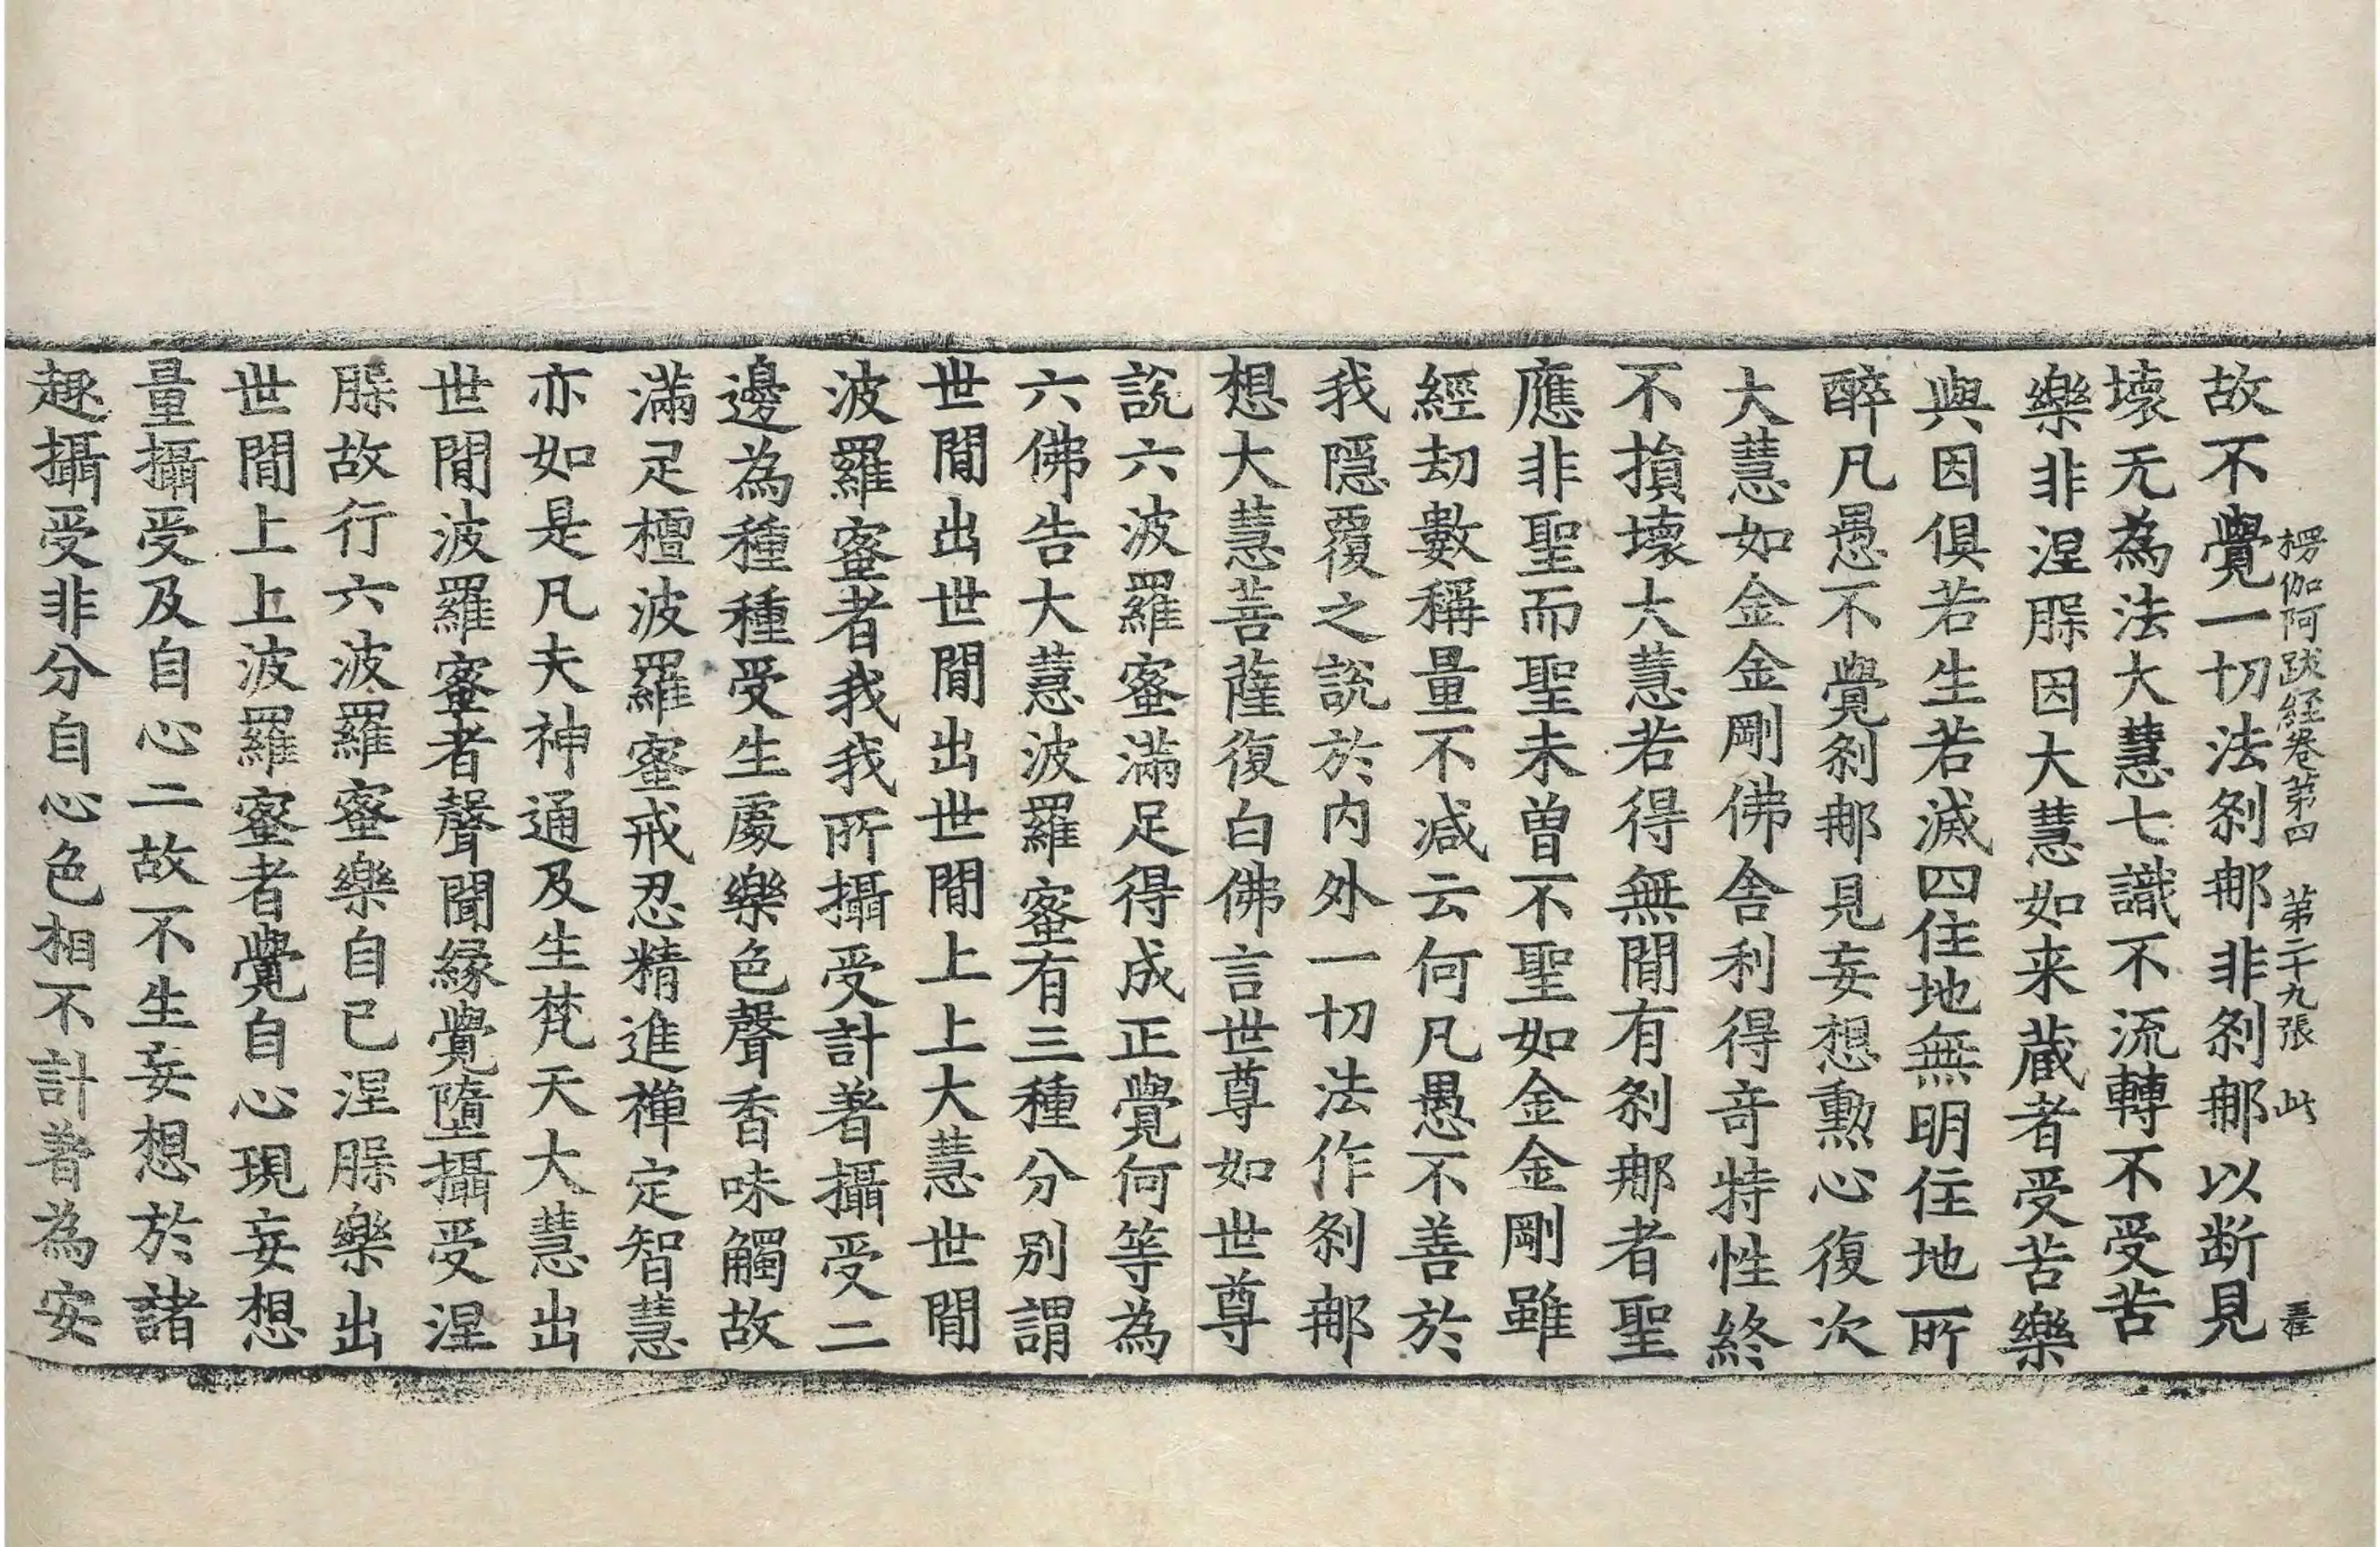 楞伽阿跋経卷第四　第二十九張　此
故不覺一切法刹那非刹那以断見
壞无為法大慧七識不流轉不受苦
樂非涅槃因大慧如来蔵者受苦樂
與因俱若生若滅四住地無明住地所
醉凡愚不覺刹那見妄想勲心復次
大慧如金金剛佛舍利得竒特性終
不損壞大慧若得無間有刹那者聖
應非聖而聖未曾不聖如金金剛雖
經劫數稱量不减云何凡愚不善於
我隱覆之說於内外一切法作刹那
想大慧菩薩復白佛言世尊如世尊
說六波羅蜜滿足得成正覺何等為
六佛告大慧波羅蜜有三種分别謂
世間出世間出世間上上大慧世間
波羅蜜者我我所攝受計著攝受二
邊為種種受生處樂色聲香味觸故
滿足檀波羅蜜戒忍精進禅定智慧
亦如是凡夫神通及生梵天大慧出
世間波羅蜜者聲聞縁覺墮攝受涅
槃故行六波羅蜜樂自己涅槃樂出
世間上上波羅蜜者覺自心現妄想
量攝受及自心二故不生妄想於諸
趣攝受非分自心色相不計著為安